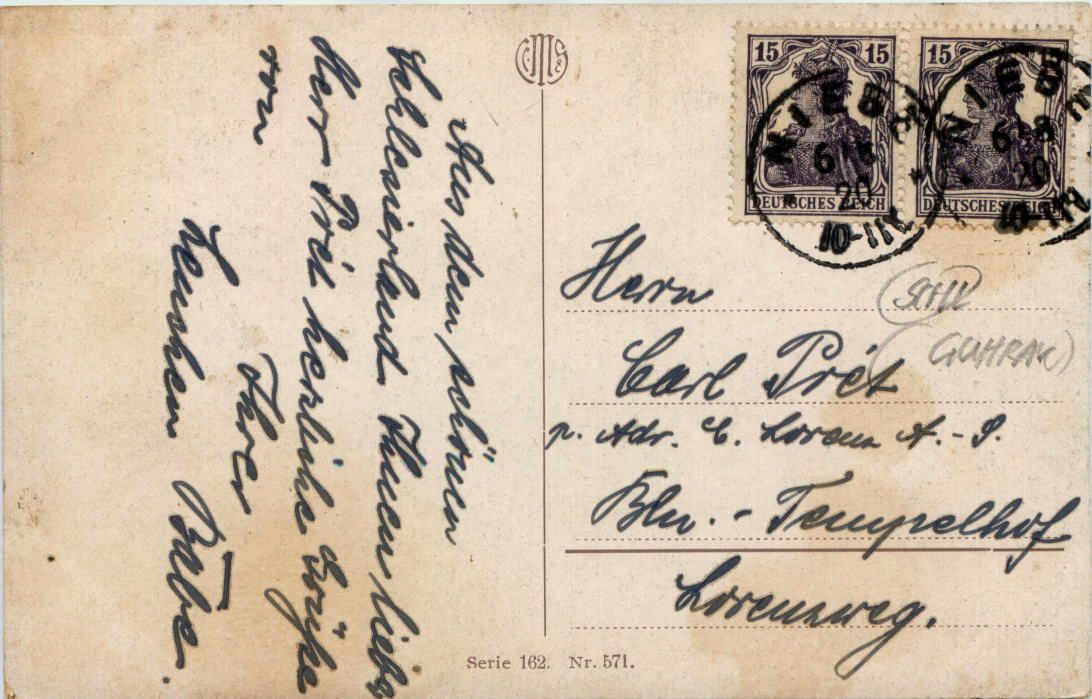 Aus dem schönen
Schlesierland Ihnen lieber
Herr Prét herzliche Grüße
von
Ihrer
Lenchen Babe.
CMS
15 15
DEUTSCHES REICH
15
DEUTSCHES REICH
NIEB
6 8
20
10-11V
NIEB
6 8
20
10-11V
Herrn
Carl Prét
p. Adr. C. Lorenz A.-G.
Bln.-Tempelhof
Lorenzweg.
GUHRAU
Serie 162. Nr. 571.